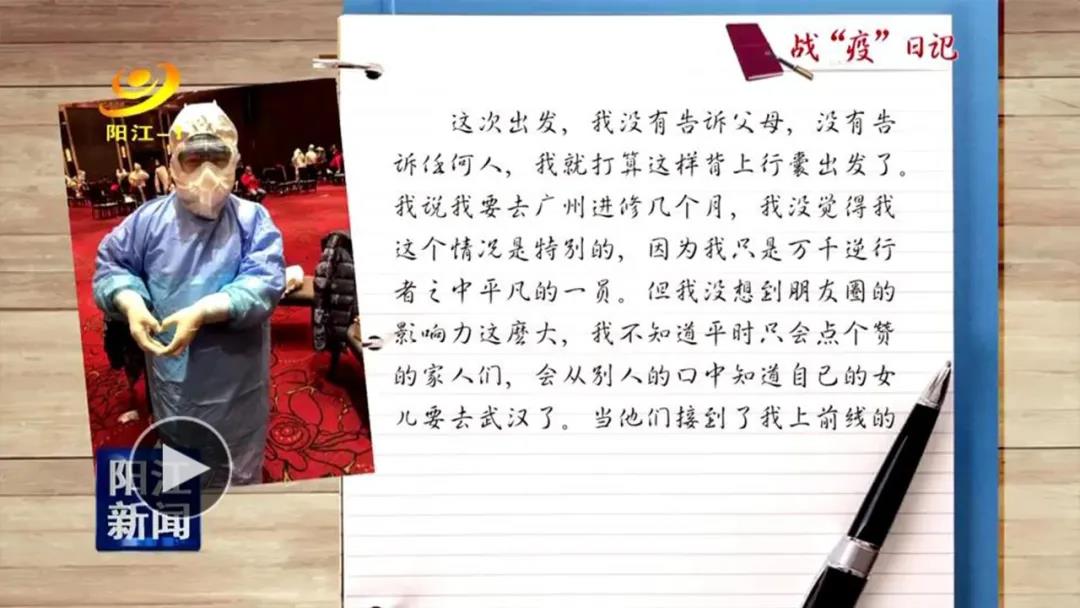 战“疫”日记
阳江-1
这次出发，我没有告诉父母，没有告
诉任何人，我就打算这样背上行囊出发了。
我说我要去广州进修几个月，我没觉得我
这个情况是特别的，因为我只是万千逆行
者之中平凡的一员。但我没想到朋友圈的
影响力这麽大，我不知道平时只会点个赞
的家人们，会从别人的口中知道自己的女
儿要去武汉了。当他们接到了我上前线的
阳江
新闻